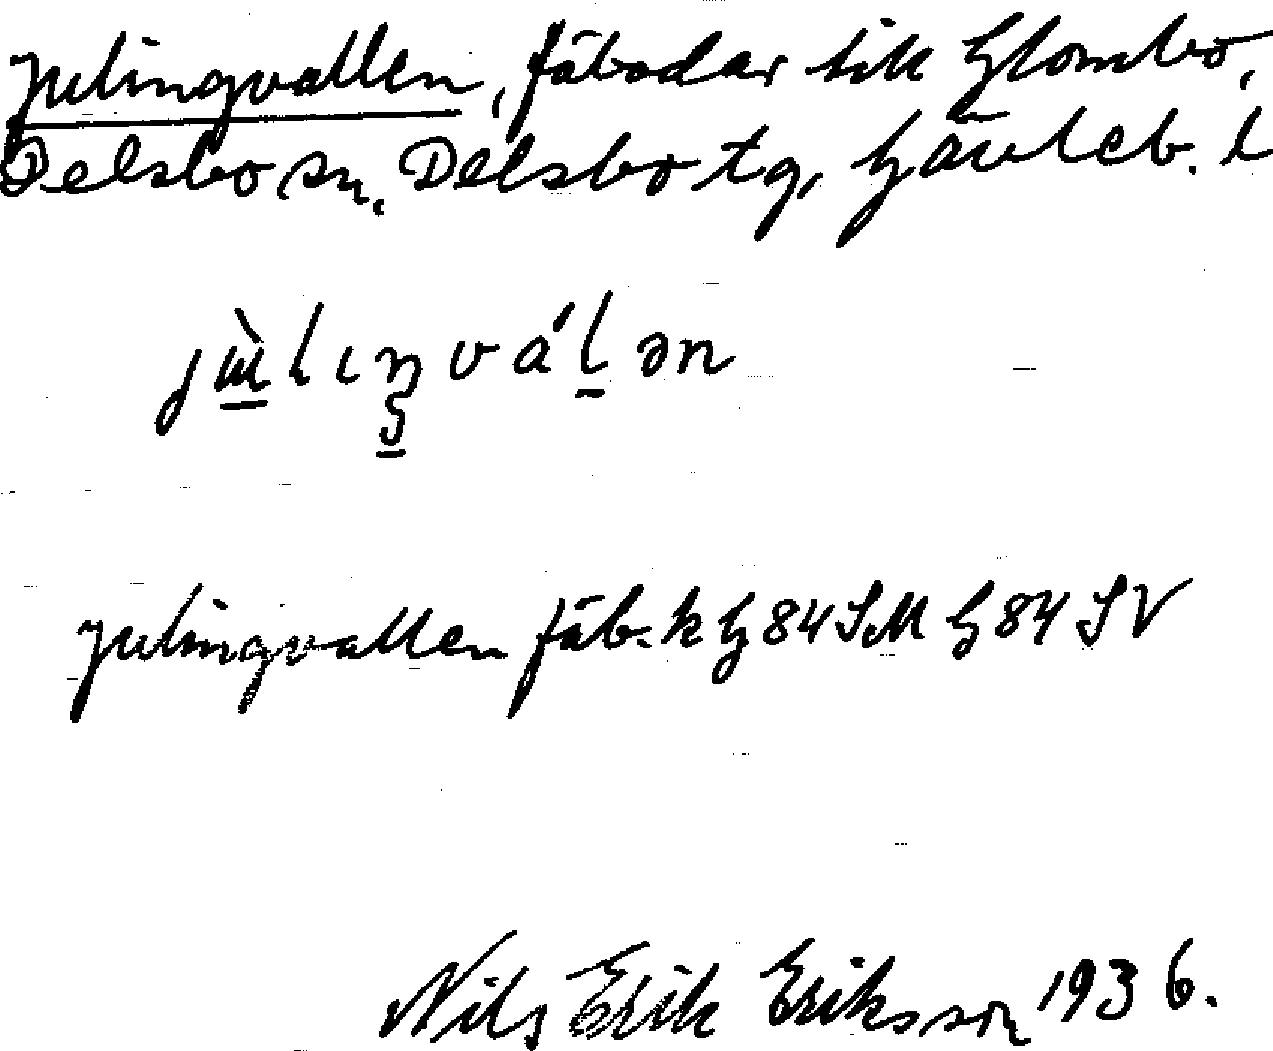 Julingvallen, fäbodar till Glombo,
Delsbo sn. Delsbo tg, Gävleb. l
Julingvallen fäb. k G84SM G84SV
Nils Erik Eriksson 1936.